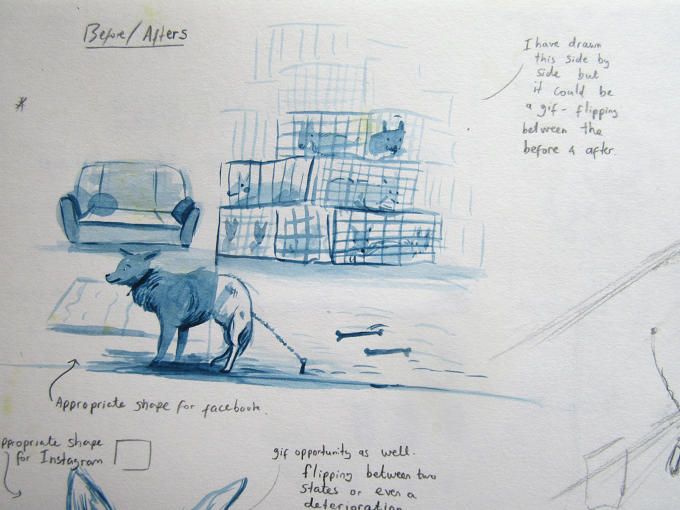 Before/Afters
I have drawn
this side by
side but
it could be
a gif - flipping
between the
before & after.
Appropriate shape for facebook.
ppropriate shape
for Instagram
gif opportunity as well.
flipping between two
states or even a
deterioration